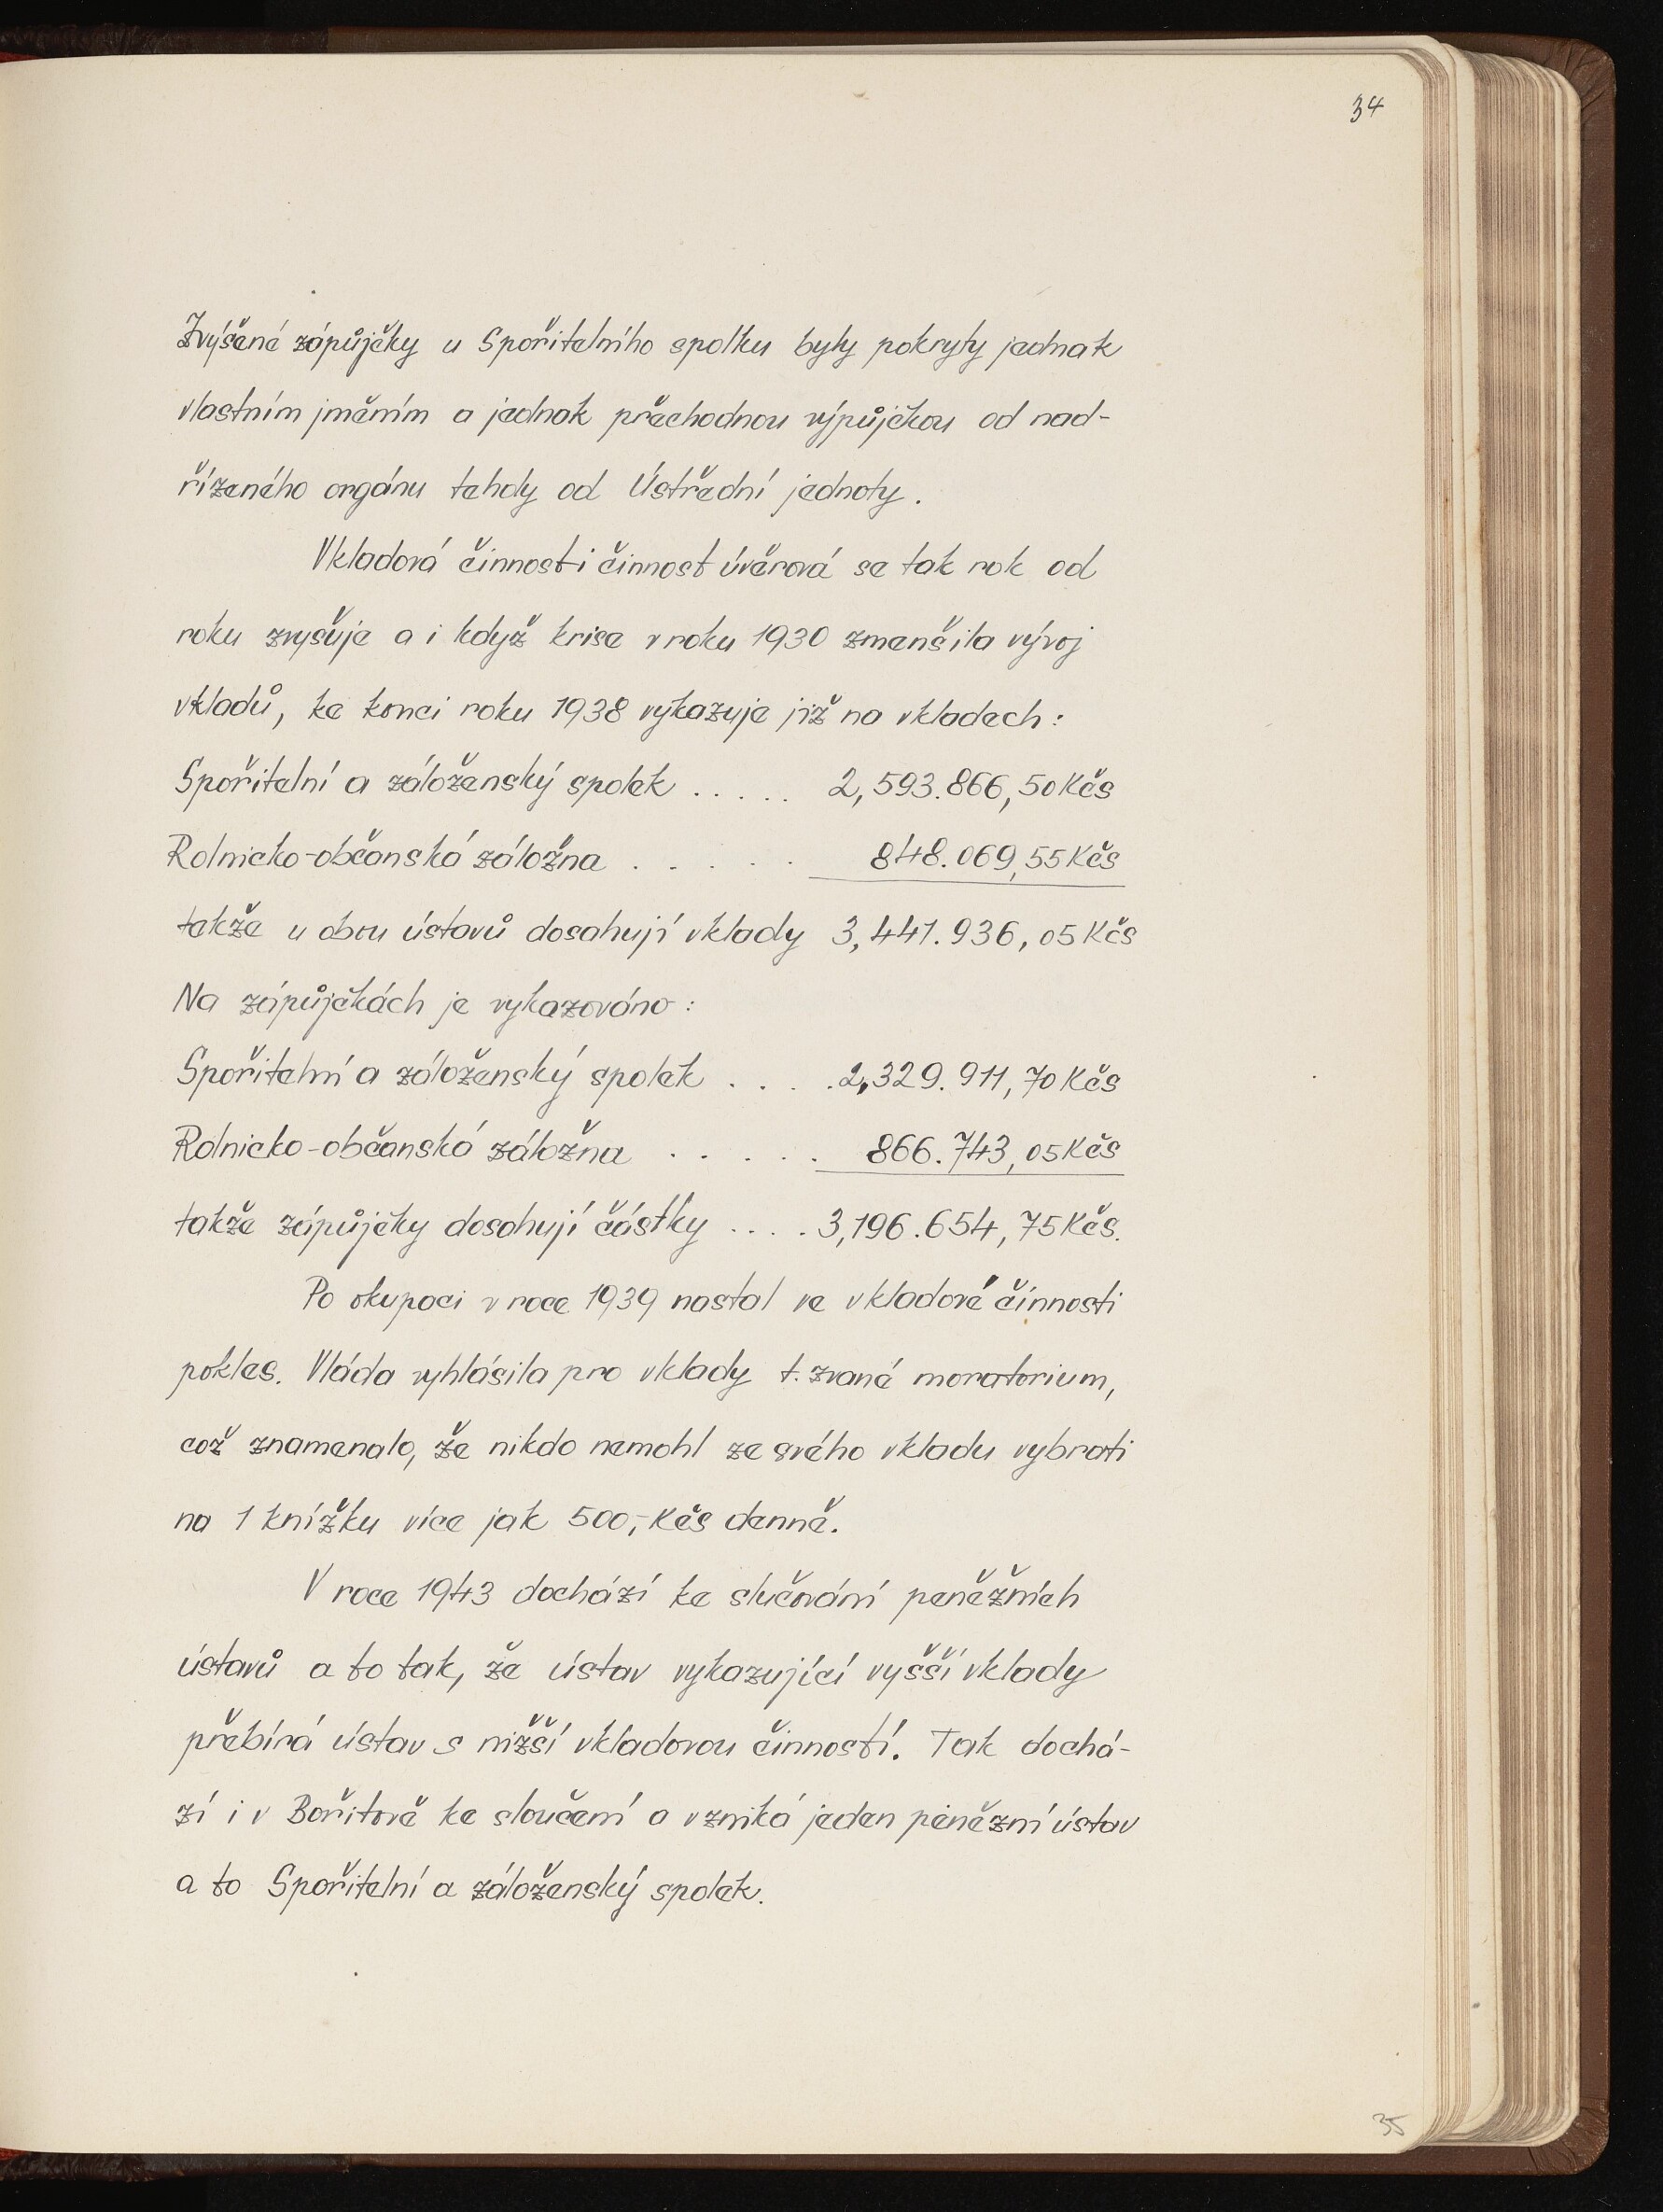 34
Zvýšené zápůjčky u Spořitelního spolku byly pokryty jednak
vlastním jměním a jednak přechodnou výpůjčkou od nad-
řízeného orgánu tehdy od Ústřední jednoty.
Vkladová činnost i činnost úvěrová se tak rok od
roku zvyšuje a i když krise v roku 1930 zmenšila vývoj
vkladů, ke konci roku 1938 vykazuje již na vkladech:
Spořitelní a záloženský spolek ..... 2,593.866,50 Kčs
Rolnicko-občanská záložna ..... 848.069,55 Kčs
takže u obou ústavů dosahují vklady 3,441.936,05 Kčs
Na zápůjčkách je vykazováno:
Spořitelní a záloženský spolek .... 2,329.911,70 Kčs
Rolnicko-občanská záložna ..... 866.743,05 Kčs
takže zápůjčky dosahují částky .... 3,196.654,75 Kčs.
Po okupaci v roce 1939 nastal ve vkladové činnosti
pokles. Vláda vyhlásila pro vklady t. zvané moratorium,
což znamenalo, že nikdo nemohl ze svého vkladu vybrati
na 1 knížku více jak 500,- Kčs denně.
V roce 1943 dochází ke slučování peněžních
ústavů a to tak, že ústav vykazující vyšší vklady
přebírá ústav s nižší vkladovou činností. Tak dochá-
zí i v Bořitově ke sloučení a vzniká jeden peněžní ústav
a to Spořitelní a záloženský spolek.
35